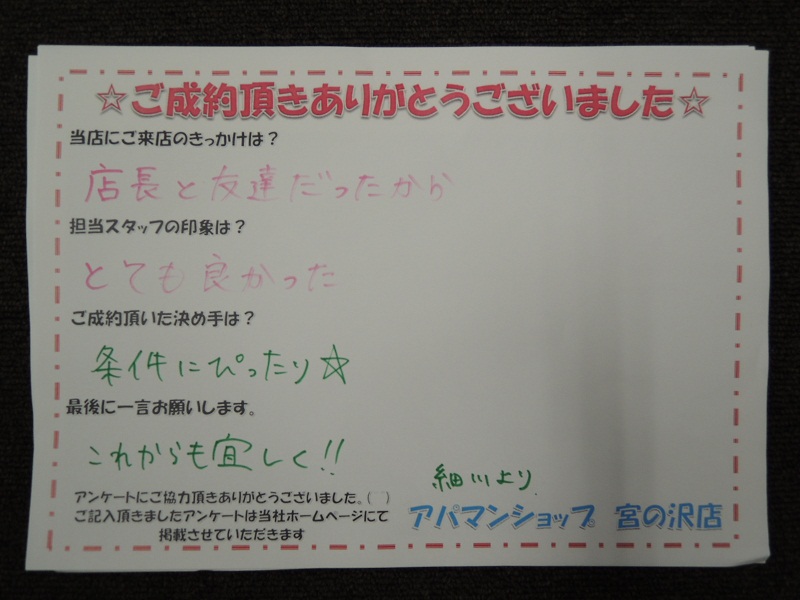 ☆ご成約頂きありがとうございました☆
当店にご来店のきっかけは？
店長と友達だったから
担当スタッフの印象は？
とても良かった
ご成約頂いた決め手は？
条件にぴったり☆
最後に一言お願いします。
これからも宜しく!!
細川より
アンケートにご協力頂きありがとうございました。(　)
ご記入頂きましたアンケートは当社ホームページにて
掲載させていただきます
アパマンショップ 宮の沢店